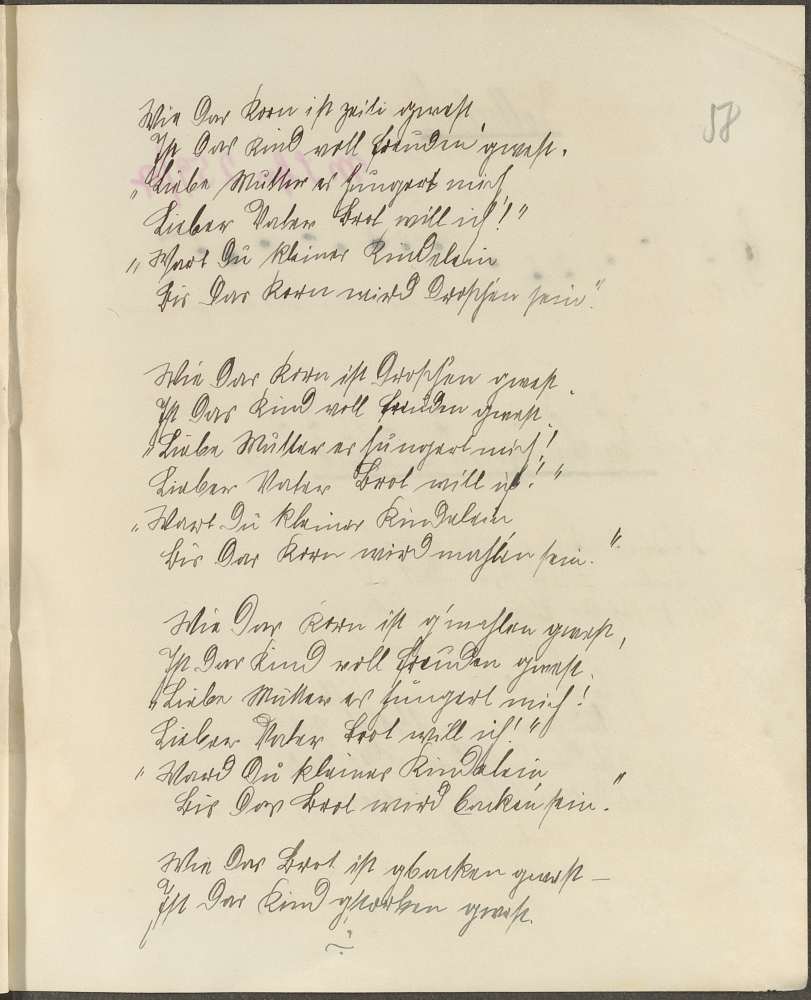 58
Wie das Korn ist zeiti gwest
Ist das Kind voll Freuden gwest.
„Liebe Mutter es hungert mich,
Lieber Vater Brot will ich!"
„Wart Du kleines Kindelein
Bis das Korn wird droschen sein".
Wie das Korn ist droschen gwest,
Ist das Kind voll Freuden gwest.
„Liebe Mutter es hungert mich!
Lieber Vater Brot will ich!"
„Wart Du kleines Kindelein
Bis das Korn wird mahlen sein."
Wie das Korn ist g'mahlen gwest,
Ist das Kind voll Freuden gwest.
„Liebe Mutter es hungert mich!
Lieber Vater Brot will ich!"
„Ward Du kleines Kindelein
Bis das Brot wird backen sein."
Wie das Brot ist gbacken gwest –
Ist das Kind gstorben gwest.